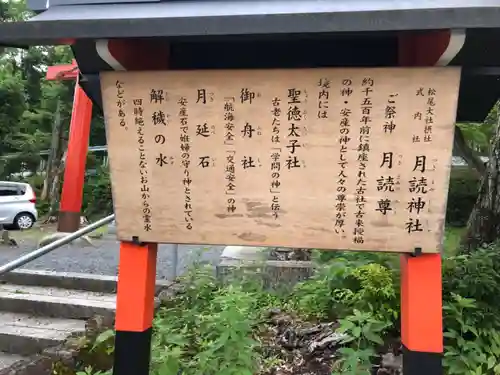 松尾大社摂社
式内社
月読神社
つきよみ
ご祭神 月読尊
約千五百年前に鎮座された古社で古来授福
の神・安産の神として人々の尊崇が厚い
境内には
聖徳太子社
古老たちは「学問の神」と伝う
御舟社
「航海安全」「交通安全」の神
月延石
安産石で妊婦の守り神とされている
解穢の水
四時絶ゆることないお山からの霊水
などがある